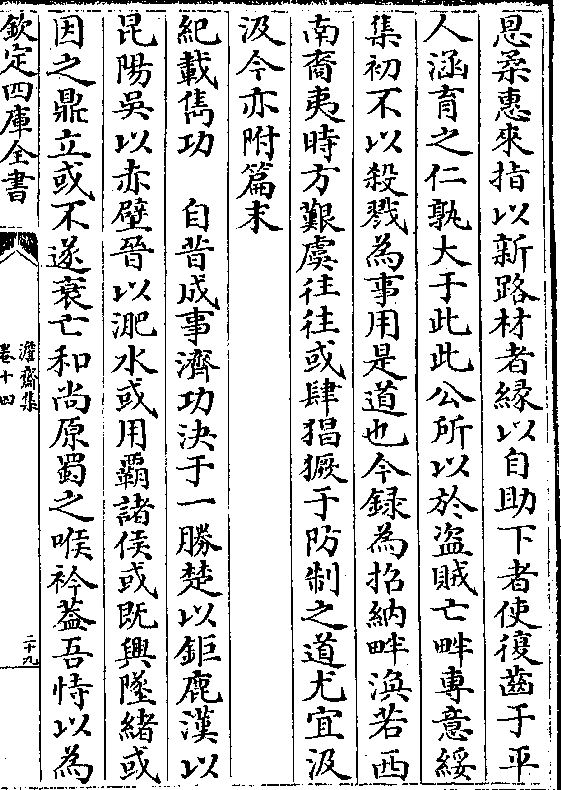 恩柔惠來指以新路材者縁以自助下者使復齒于平
人涵育之仁孰大于此此公所以於盜賊亡畔專意綏
集初不以殺戮為事用是道也今録為招納畔渙若西
南裔夷時方艱虞往往或肆猖獗于防制之道尤宜汲
汲今亦附篇末
紀載雋功　自昔成事濟功決于一勝楚以鉅鹿漢以
昆陽吳以赤壁晉以淝水或用霸諸侯或既興墜緒或
因之鼎立或不遂衰亡和尚原蜀之喉衿葢吾恃以為
欽定四庫全書
澹齋集
卷十四
二十九